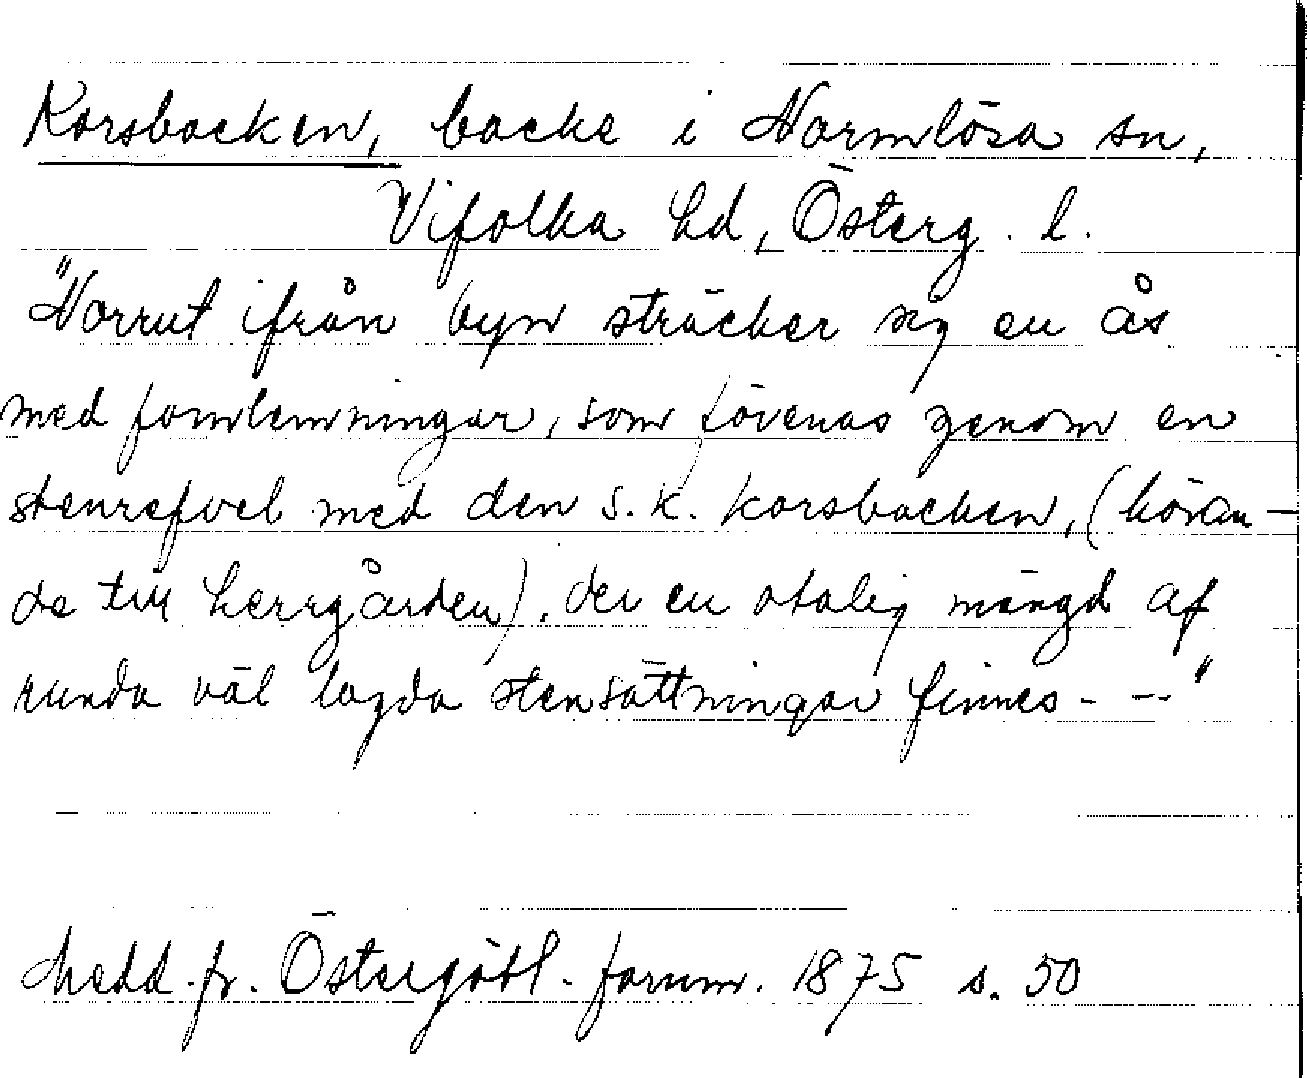 Korsbacken, backe i Normlösa sn,
Vifolka hd, Österg. l.
"Norrut ifrån byn sträcker sig en ås
med fornlemningar, som förenas genom en
stenrefvel med den s.k. korsbacken, (höran-
de till herrgården), der en otalig mängd af
runda väl lagda stensättningar finnes - --"
Medd. fr. Östergötl. fornm. 1875 s. 50